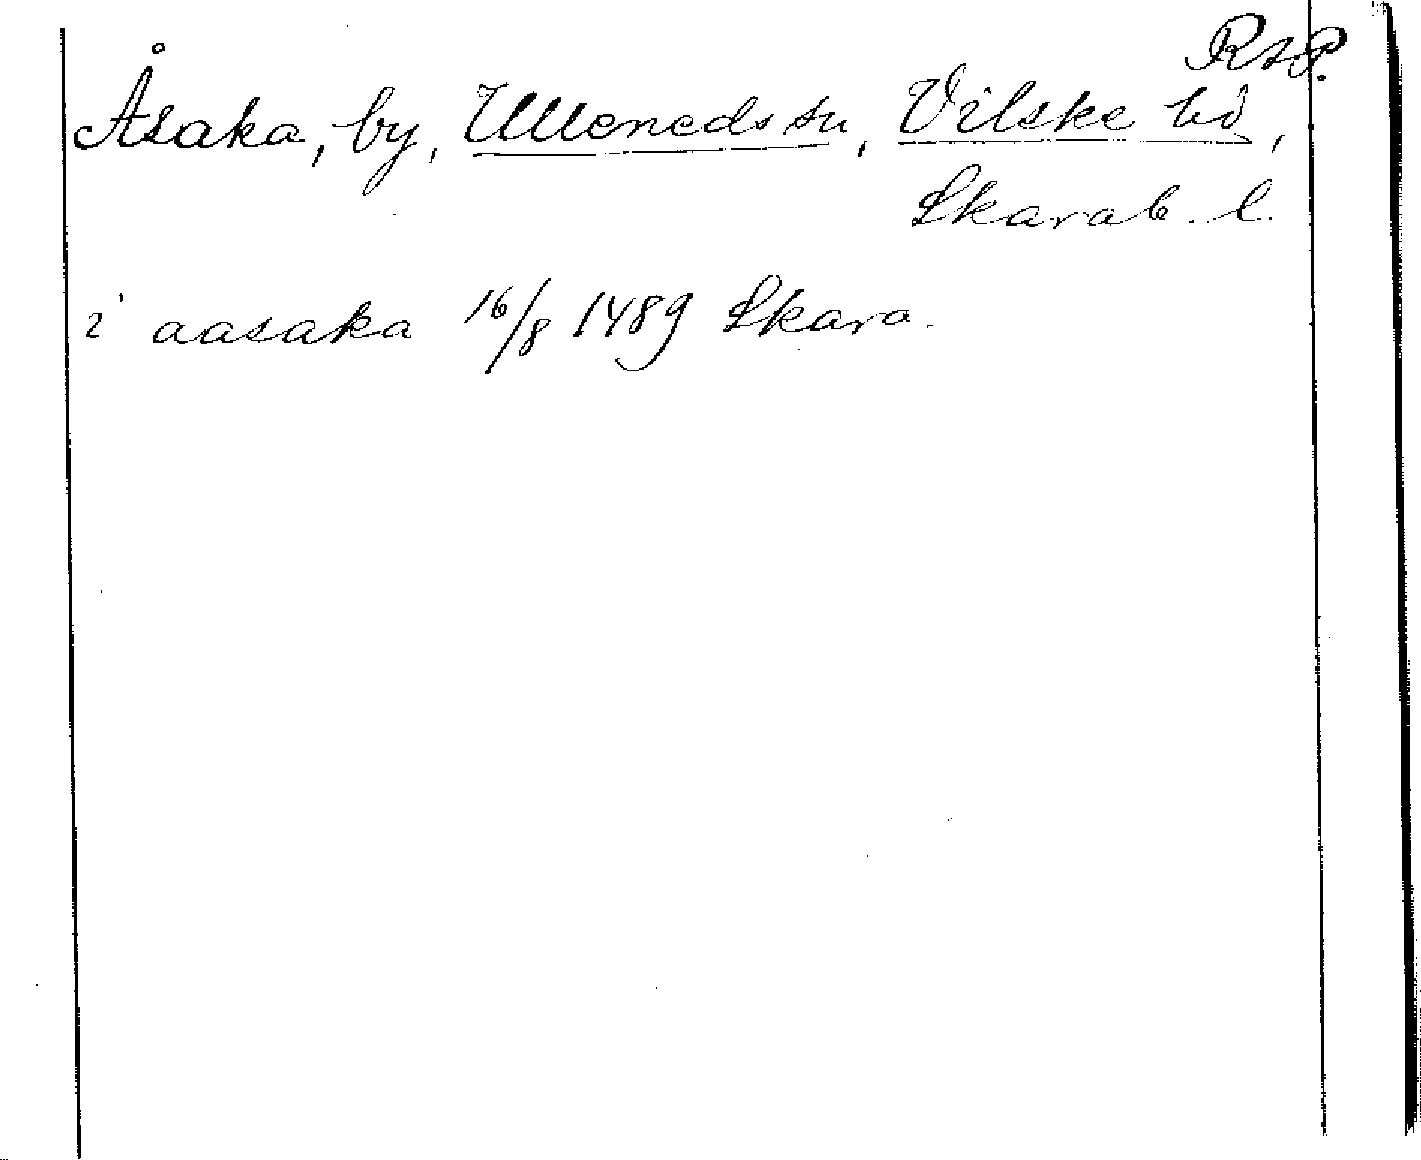 RAP.
Åsaka, by, Ulleneds sn, Vilske hd,
Skarab. l.
i aasaka 16/8 1489 Skara.